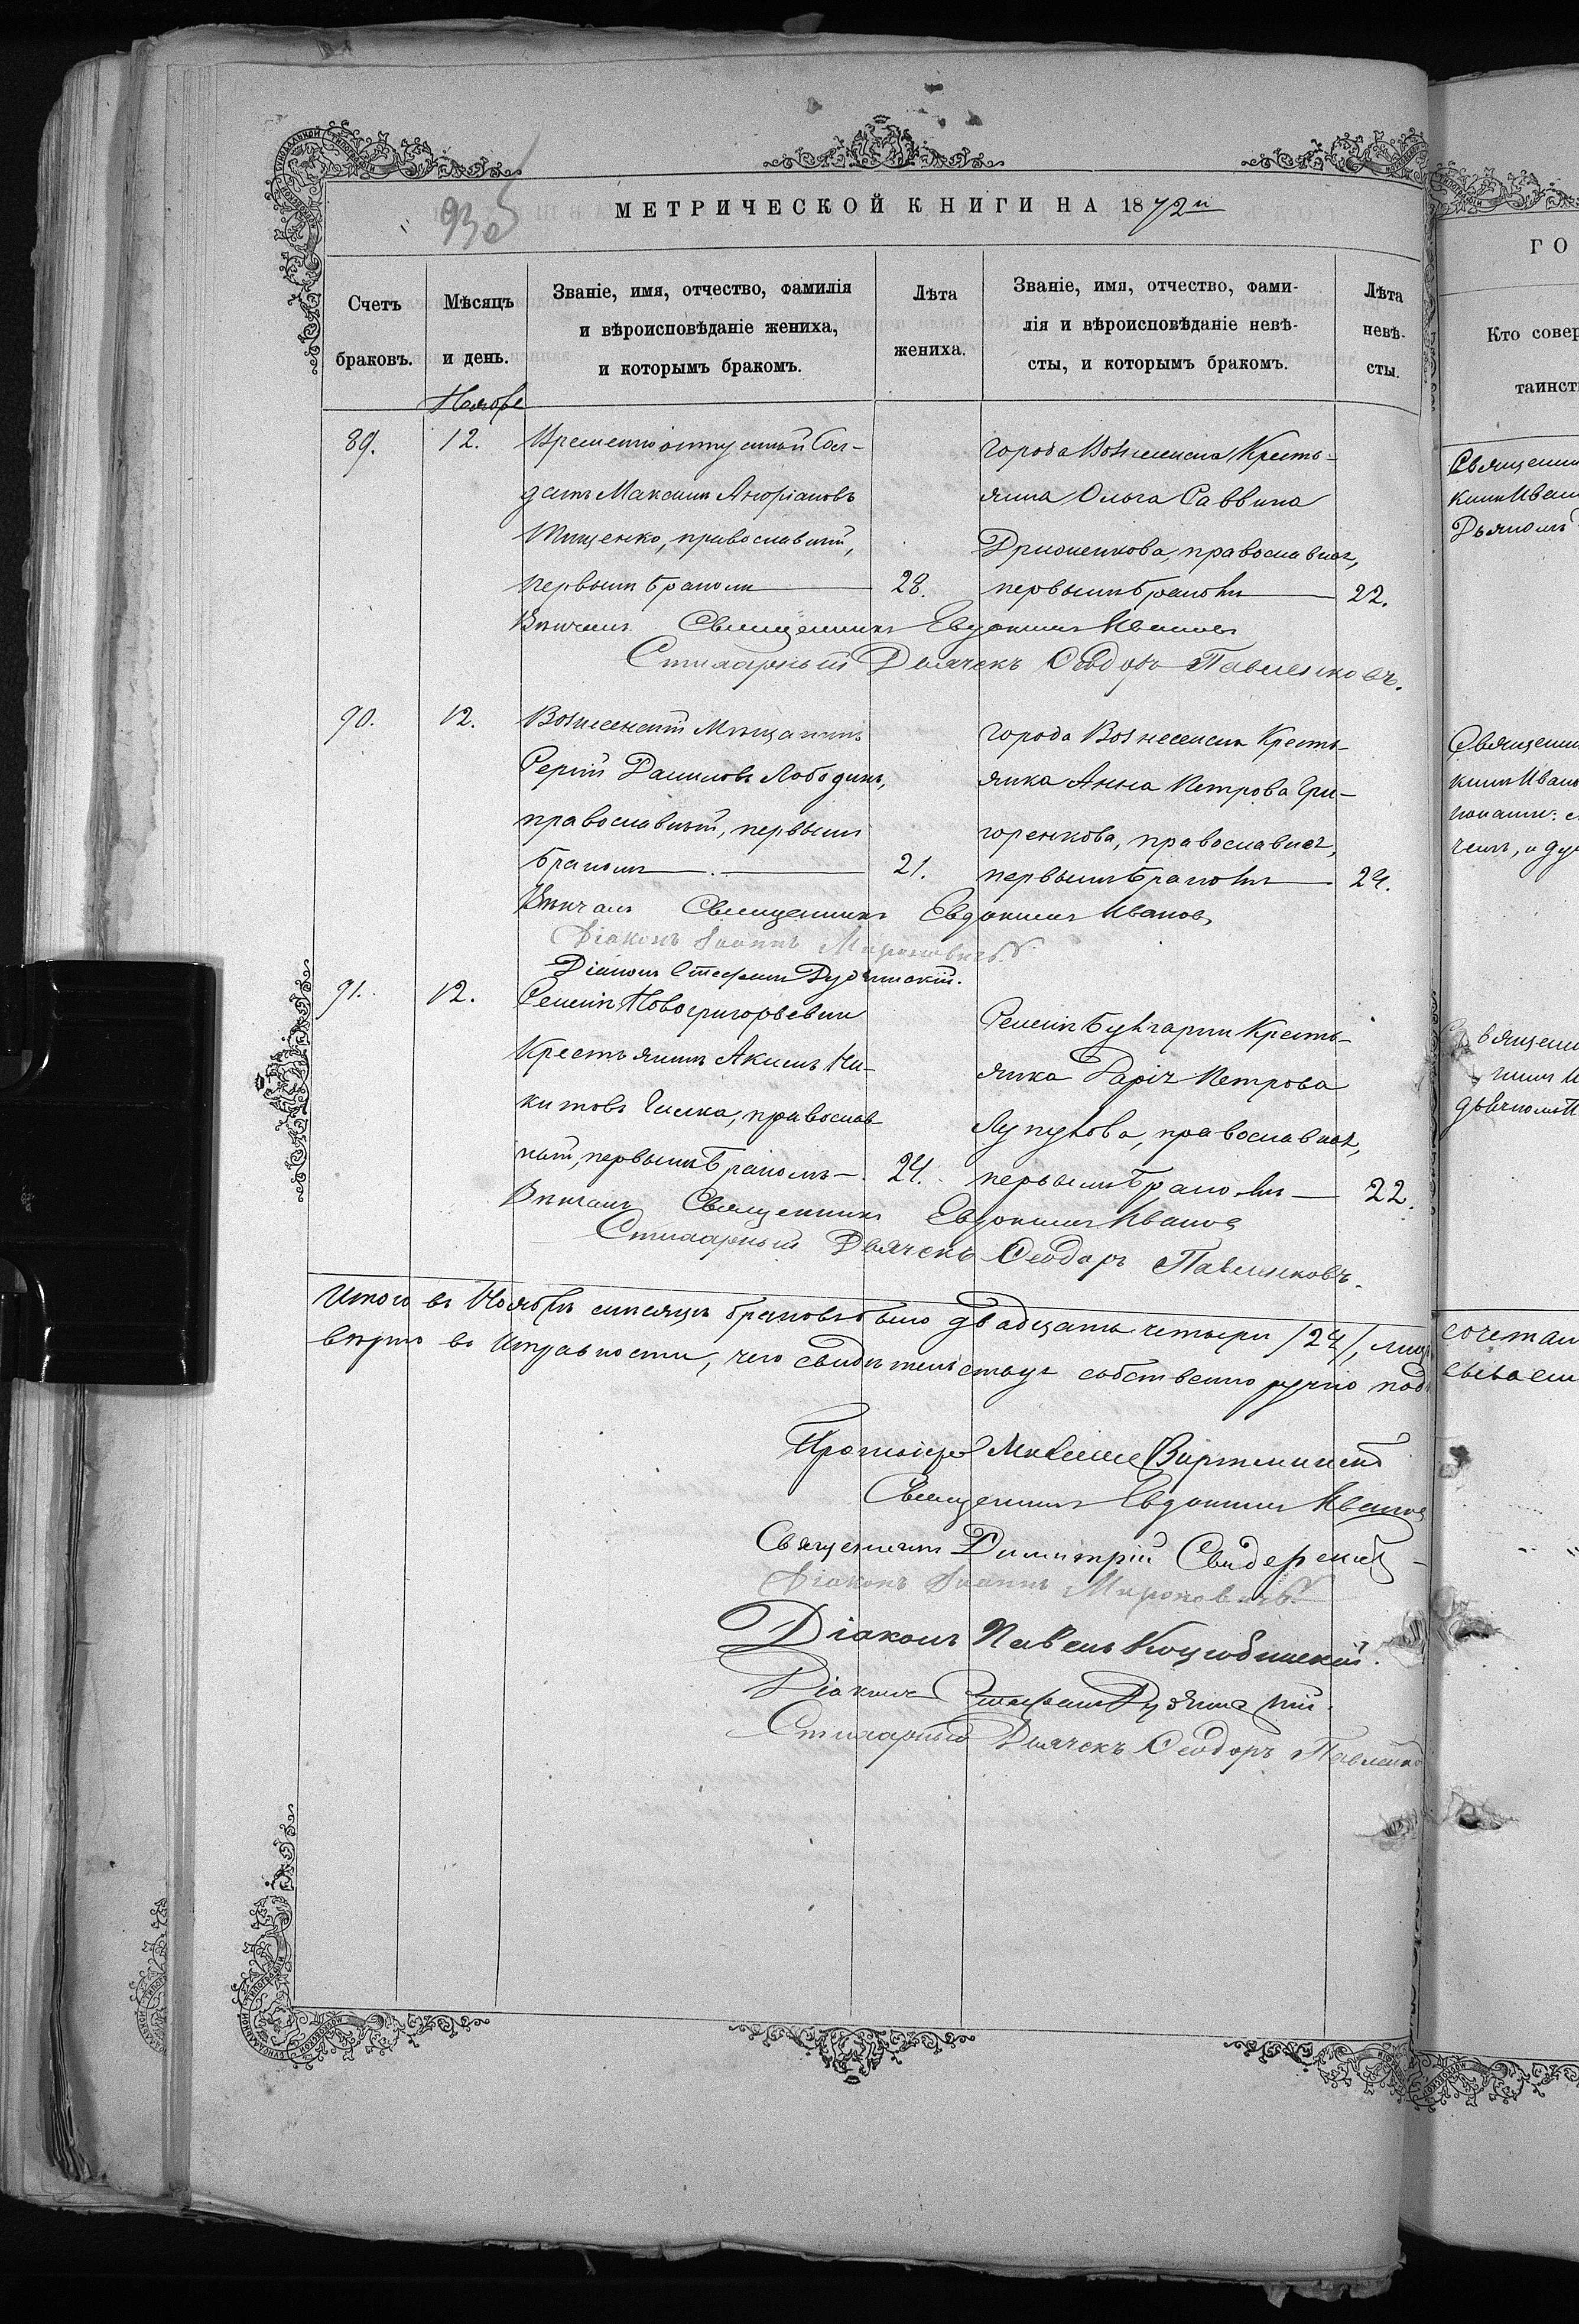 МЕТРИЧЕСКОЙ КНИГИ НА 1872й
Счетъ браковъ.
Мѣсяцъ и день.
Званіе, имя, отчество, фамилія
и вѣроисповѣданіе жениха,
и которымъ бракомъ.
Лѣта
жениха.
Званіе, имя, отчество, фами-
лія и вѣроисповѣданіе невѣ-
сты, и которымъ бракомъ.
Лѣта
невѣ-
сты.
Ноября
89. 12.
Временноотпускный Сол-
датъ Максимъ Андріановъ
Тищенко, православный,
первымъ бракомъ 28.
города Вознесенска Кресть-
янка Ольга Саввина
православная,
первымъ бракомъ 22.
Вѣнчалъ Священникъ Евдокимъ Ивановъ
Стихарный Дьячекъ Ѳеодоръ Павленковъ.
90. 12.
Вознесенскій Мѣщанинъ
Сергій Даниловъ Лободинъ,
православный, первымъ
бракомъ 21.
города Вознесенска Кресть-
янка Анна Петрова Гри-
горенкова, православная,
первымъ бракомъ 24.
Вѣнчалъ Священникъ Евдокимъ Ивановъ
Діаконъ Іоаннъ Мироновичъ
Діаконъ Стефанъ
91. 12.
Селенія Новогригорьевки
Крестьянинъ Акимъ Ни-
китовъ православ
ный, первымъ бракомъ 24.
Селенія Булгарки Кресть-
янка Дарія Петрова
Лупулова, православная,
первымъ бракомъ 22.
Вѣнчалъ Священникъ Евдокимъ Ивановъ
Стихарный Дьячекъ Ѳеодоръ Павленковъ.
Итого въ Ноябрѣ мѣсяцѣ браковъ было двадцать четыре /24/,
вѣрно въ исправности, чего свидѣтельствуя собственно ручно под
Протоіерей
Священникъ Евдокимъ Ивановъ
Священникъ Димитрій Свидерскій
Діаконъ Іоаннъ Мироновичъ
Діаконъ Павелъ Коцюбинскій.
Діаконъ Стефанъ
Стихарный Дьячекъ Ѳеодоръ Павленко
ГО
Кто совер
таинст
Священни
кимъ Иван
Дьякомъ
Священни
кимъ Ивано
сочетан
сываем